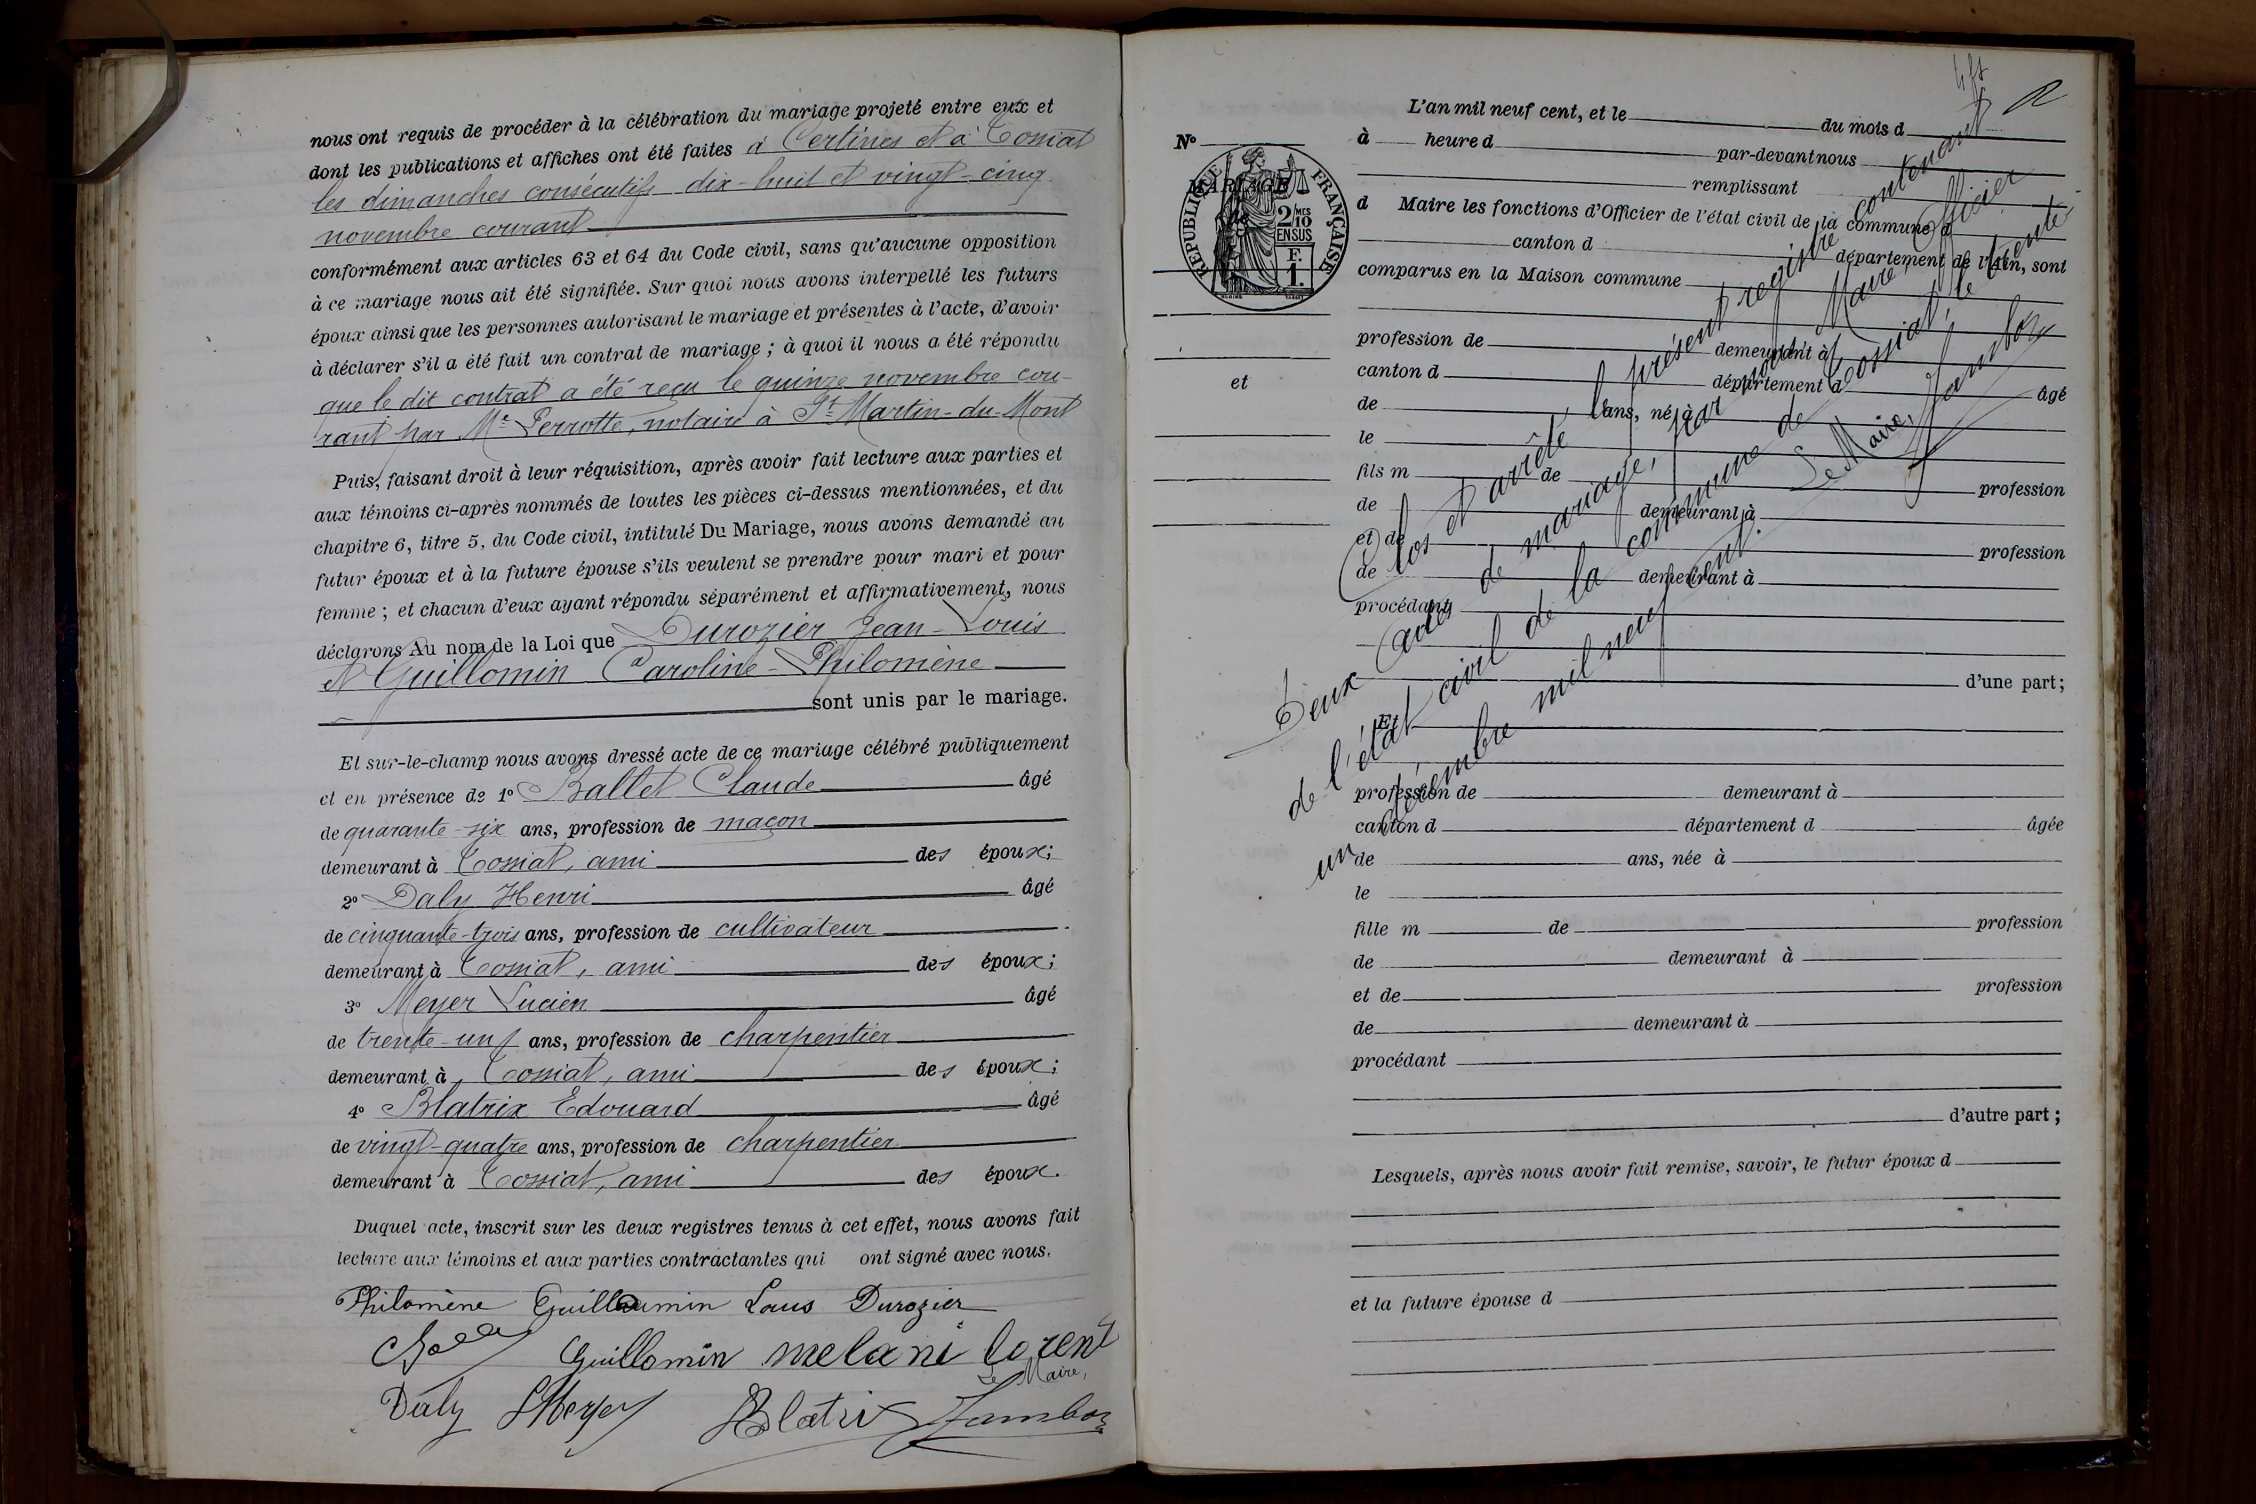 nous ont requis de procéder à la célébration du mariage projeté entre eux et
dont les publications et affiches ont été faites à Certines et à Tossiat
les dimanches consécutifs dix-huit et vingt-cinq
novembre courant
conformément aux articles 63 et 64 du Code civil, sans qu'aucune opposition
à ce mariage nous ait été signifiée. Sur quoi nous avons interpellé les futurs
époux ainsi que les personnes autorisant le mariage et présentes à l'acte, d'avoir
à déclarer s'il a été fait un contrat de mariage ; à quoi il nous a été répondu
que le dit contrat a été reçu le quinze novembre cou-
rant par Me Perrotte, notaire à St Martin-du-Mont
Puis, faisant droit à leur réquisition, après avoir fait lecture aux parties et
aux témoins ci-après nommés de toutes les pièces ci-dessus mentionnées, et du
chapitre 6, titre 5, du Code civil, intitulé Du Mariage, nous avons demandé au
futur époux et à la future épouse s'ils veulent se prendre pour mari et pour
femme ; et chacun d'eux ayant répondu séparément et affirmativement, nous
déclarons Au nom de la Loi que Durozier Jean-Louis
et Guillomin Caroline-Philomène
sont unis par le mariage.
Et sur-le-champ nous avons dressé acte de ce mariage célébré publiquement
et en présence de 1o Ballet Claude âgé
de quarante-six ans, profession de maçon
demeurant à Tossiat, ami des époux;
2o Daly Henri âgé
de cinquante-trois ans, profession de cultivateur
demeurant à Tossiat, ami des époux;
3o Meyer Lucien âgé
de trente-un ans, profession de charpentier
demeurant à Tossiat, ami des époux;
4o Blatrix Edouard âgé
de vingt-quatre ans, profession de charpentier
demeurant à Tossiat, ami des époux.
Duquel acte, inscrit sur les deux registres tenus à cet effet, nous avons fait
lecture aux témoins et aux parties contractantes qui ont signé avec nous.
Philomène Guilloumin Louis Durozier
Guillomin melani lorent
Le Maire,
Daly LMeyer Blatrix Jambon
L'an mil neuf cent, et le du mois d
No à heure d par-devant nous
MARIAGE remplissant
de
RÉPUBLIQUE FRANÇAISE
2/10 MES
EN SUS
F.
1.
d Maire les fonctions d'Officier de l'état civil de la commune d
canton d département de l'Ain, sont
comparus en la Maison commune
profession de demeurant à
canton d département d
et
de ans, né à âgé
le
fils m de profession
de demeurant à
et de profession
de demeurant à
procédant
d'une part;
Et
profession de demeurant à
canton d département d âgée
de ans, née à
le
fille m de profession
de demeurant à
et de profession
de demeurant à
procédant
d'autre part ;
Lesquels, après nous avoir fait remise, savoir, le futur époux d
et la future épouse d
Clos et arrêté le présent registre contenant
Deux actes de mariage, par nous Maire, Officier
de l'état civil de la commune de Tossiat, le trente
un décembre mil neuf cent.
Le Maire,
Jambon